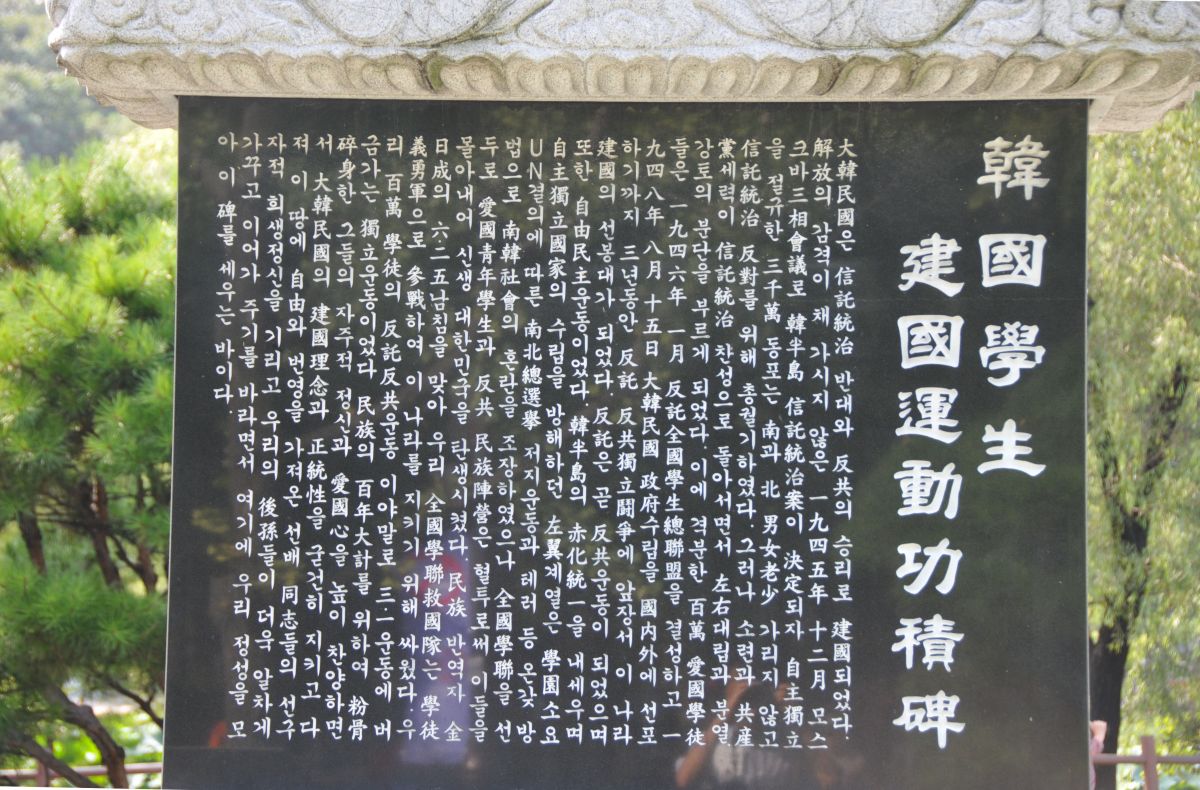 韓國學生
建國運動功積碑
大韓民國은 信託統治 반대와 反共의 승리로 建國되었다.
解放의 감격이 채 가시지 않은 一九四五年 十二月 모스
크바三相會議로 韓半島 信託統治案이 決定되자 自主獨立
을 절규한 三千萬 동포는 南과 北 男女老少 가리지 않고
信託統治 反對를 위해 총궐기하였다. 그러나 소련과 共産
黨세력이 信託統治 찬성으로 돌아서면서 左右대립과 분열
강토의 분단을 부르게 되었다. 이에 격분한 百萬 愛國學徒
들은 一九四六年 一月 反託全國學生總聯盟을 결성하고 一
九四八年 八月 十五日 大韓民國 政府수립을 國内外에 선포
하기까지 三년동안 反託 反共獨立闘爭에 앞장서 이 나라
建國의 선봉대가 되었다. 反託은 곧 反共운동이 되었으며
또한 自由民主운동이었다. 韓半島의 赤化統一을 내세우며
自主獨立國家의 수립을 방해하던 左翼계열은 學園소요
UN결의에 따른 南北總選擧 저지운동과 테러 등 온갖 방
법으로 南韓社會의 혼란을 조장하였으나 全國學聯을 선
두로 愛國靑年學生과 反共 民族陣營은 혈투로써 이들을
몰아내어 신생 대한민국을 탄생시켰다. 民族 반역자 金
日成의 六·二五남침을 맞아 우리 全國學聯救國隊는 學徒
義勇軍으로 參戰하여 이 나라를 지키기 위해 싸웠다. 우
리 百萬 學徒의 反託反共운동 이야말로 三·一운동에 버
금가는 獨立운동이었다. 民族의 百年大計를 위하여 粉骨
碎身한 그들의 자주적 정신과 愛國心을 높이 찬양하면
서 大韓民國의 建國理念과 正統性을 굳건히 지키고 다
져 이 땅에 自由와 번영을 가져온 선배 同志들의 선구
자적 희생정신을 기리고 우리의 後孫들이 더욱 알차게
가꾸고 이어가 주기를 바라면서 여기에 우리 정성을 모
아 이 碑를 세우는 바이다.